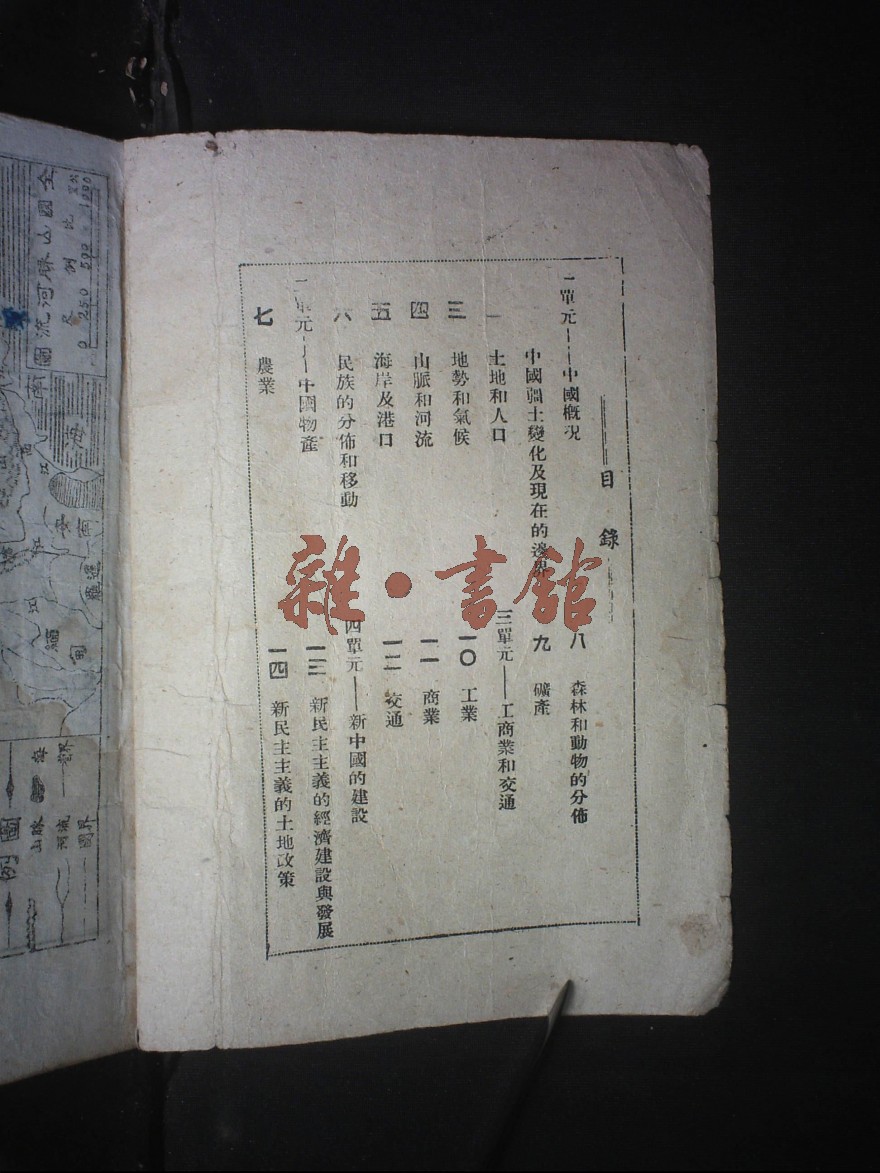 目錄
一單元——中國概況
中國疆土變化及現在的邊界
土地和人口
三 地勢和氣候
四 山脈和河流
五 海岸及港口
六 民族的分佈和移動
二單元——中國物產
七 農業
八 森林和動物的分佈
九 礦產
三單元——工商業和交通
一〇 工業
一一 商業
一二 交通
四單元——新中國的建設
一三 新民主主義的經濟建設與發展
一四 新民主主義的土地政策
雜·書館
全國山脉河流圖
比例尺
0 250 500 1000
南海
緬甸
圖例
山脉
河流
國界